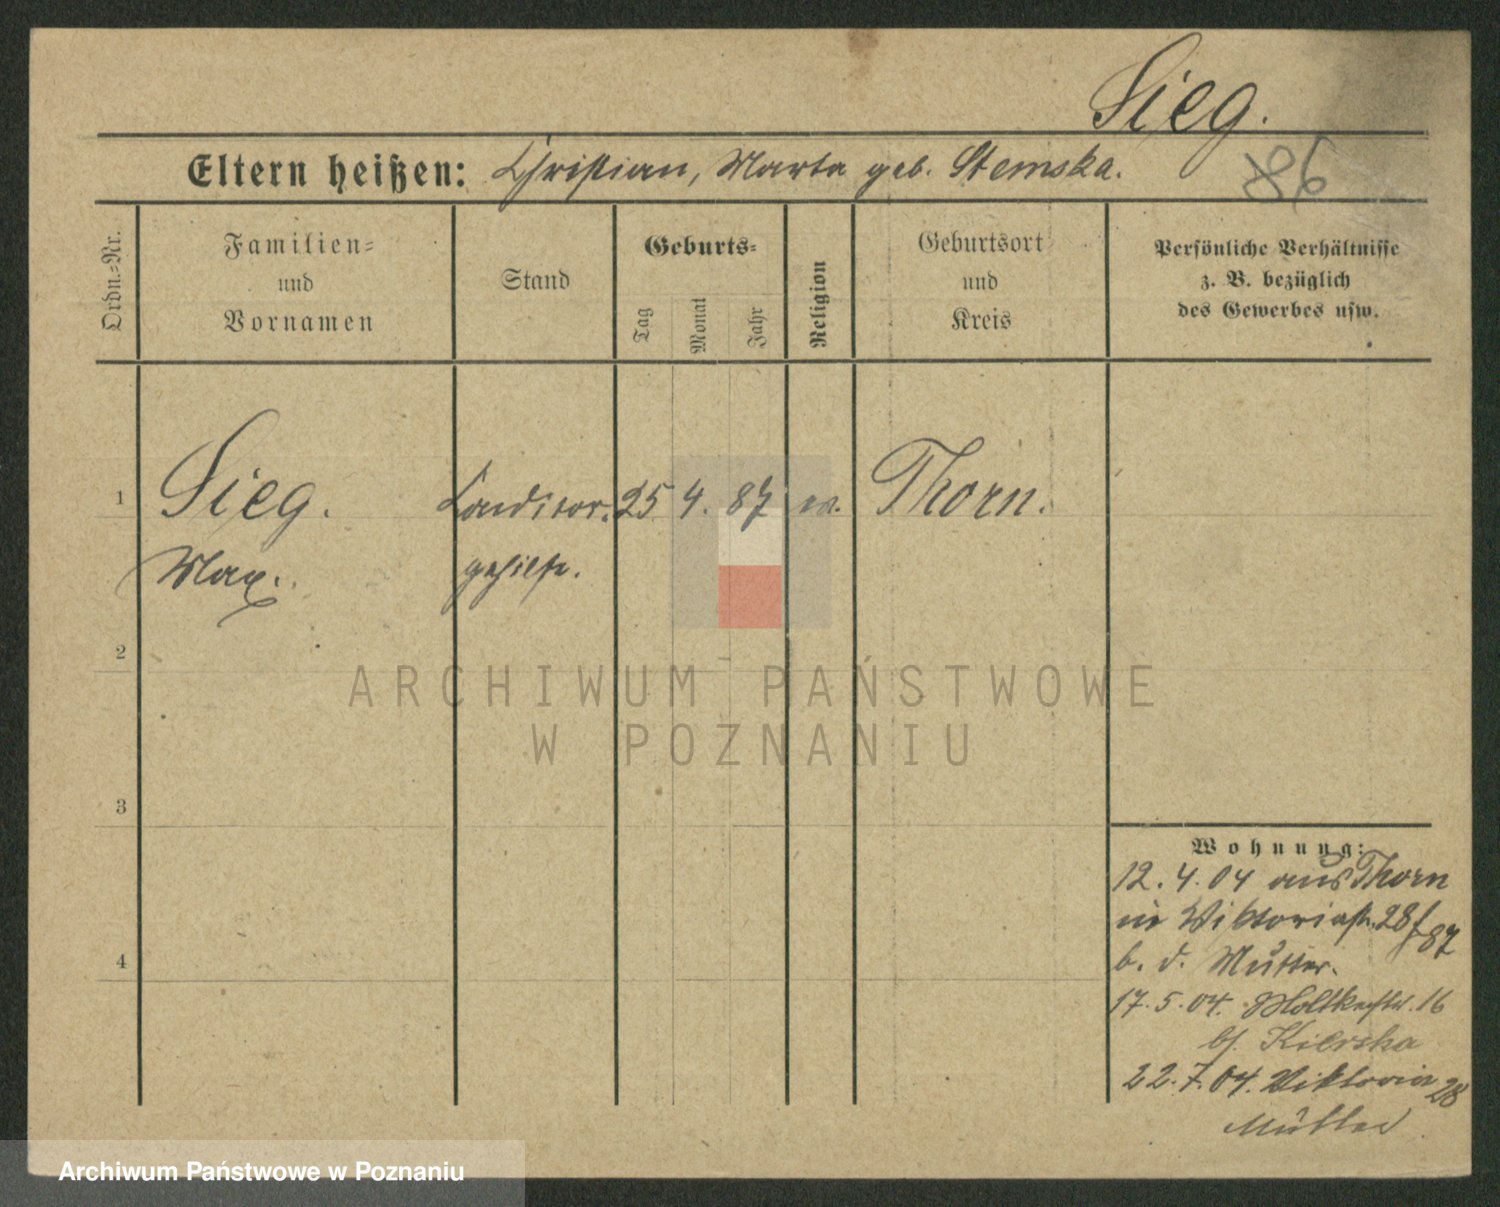 Sieg.
Eltern heißen: Christian, Marta geb. Stemska.
86
Ordn.=Nr.
Familien=
und
Vornamen
Stand
Geburts=
Tag
Monat
Jahr
Religion
Geburtsort
und
Kreis
Persönliche Verhältnisse
z. B. bezüglich
des Gewerbes usw.
1 Sieg. Conditor. 25 4. 87 ev. Thorn.
Max. gehilfe.
2
ARCHIWUM PAŃSTWOWE
W POZNANIU
3
Wohnung:
12. 4. 04 aus Thorn
in Viktoriastr. 28f 87
4
b. d. Mutter.
17. 5. 04. Moltkestr. 16
bei Kierska
22. 7. 04. Viktoria 28
Mutter
Archiwum Państwowe w Poznaniu